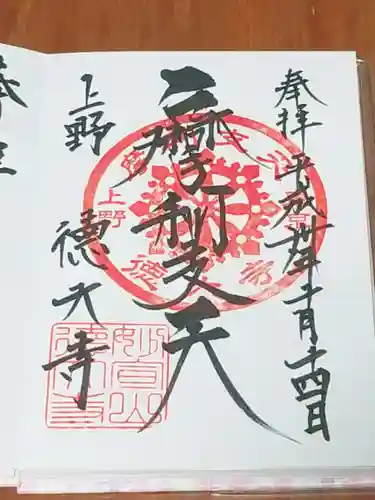 奉拝 平成卅年十月十四日
摩利支天
上野 徳大寺
上野
妙宣山
徳大寺